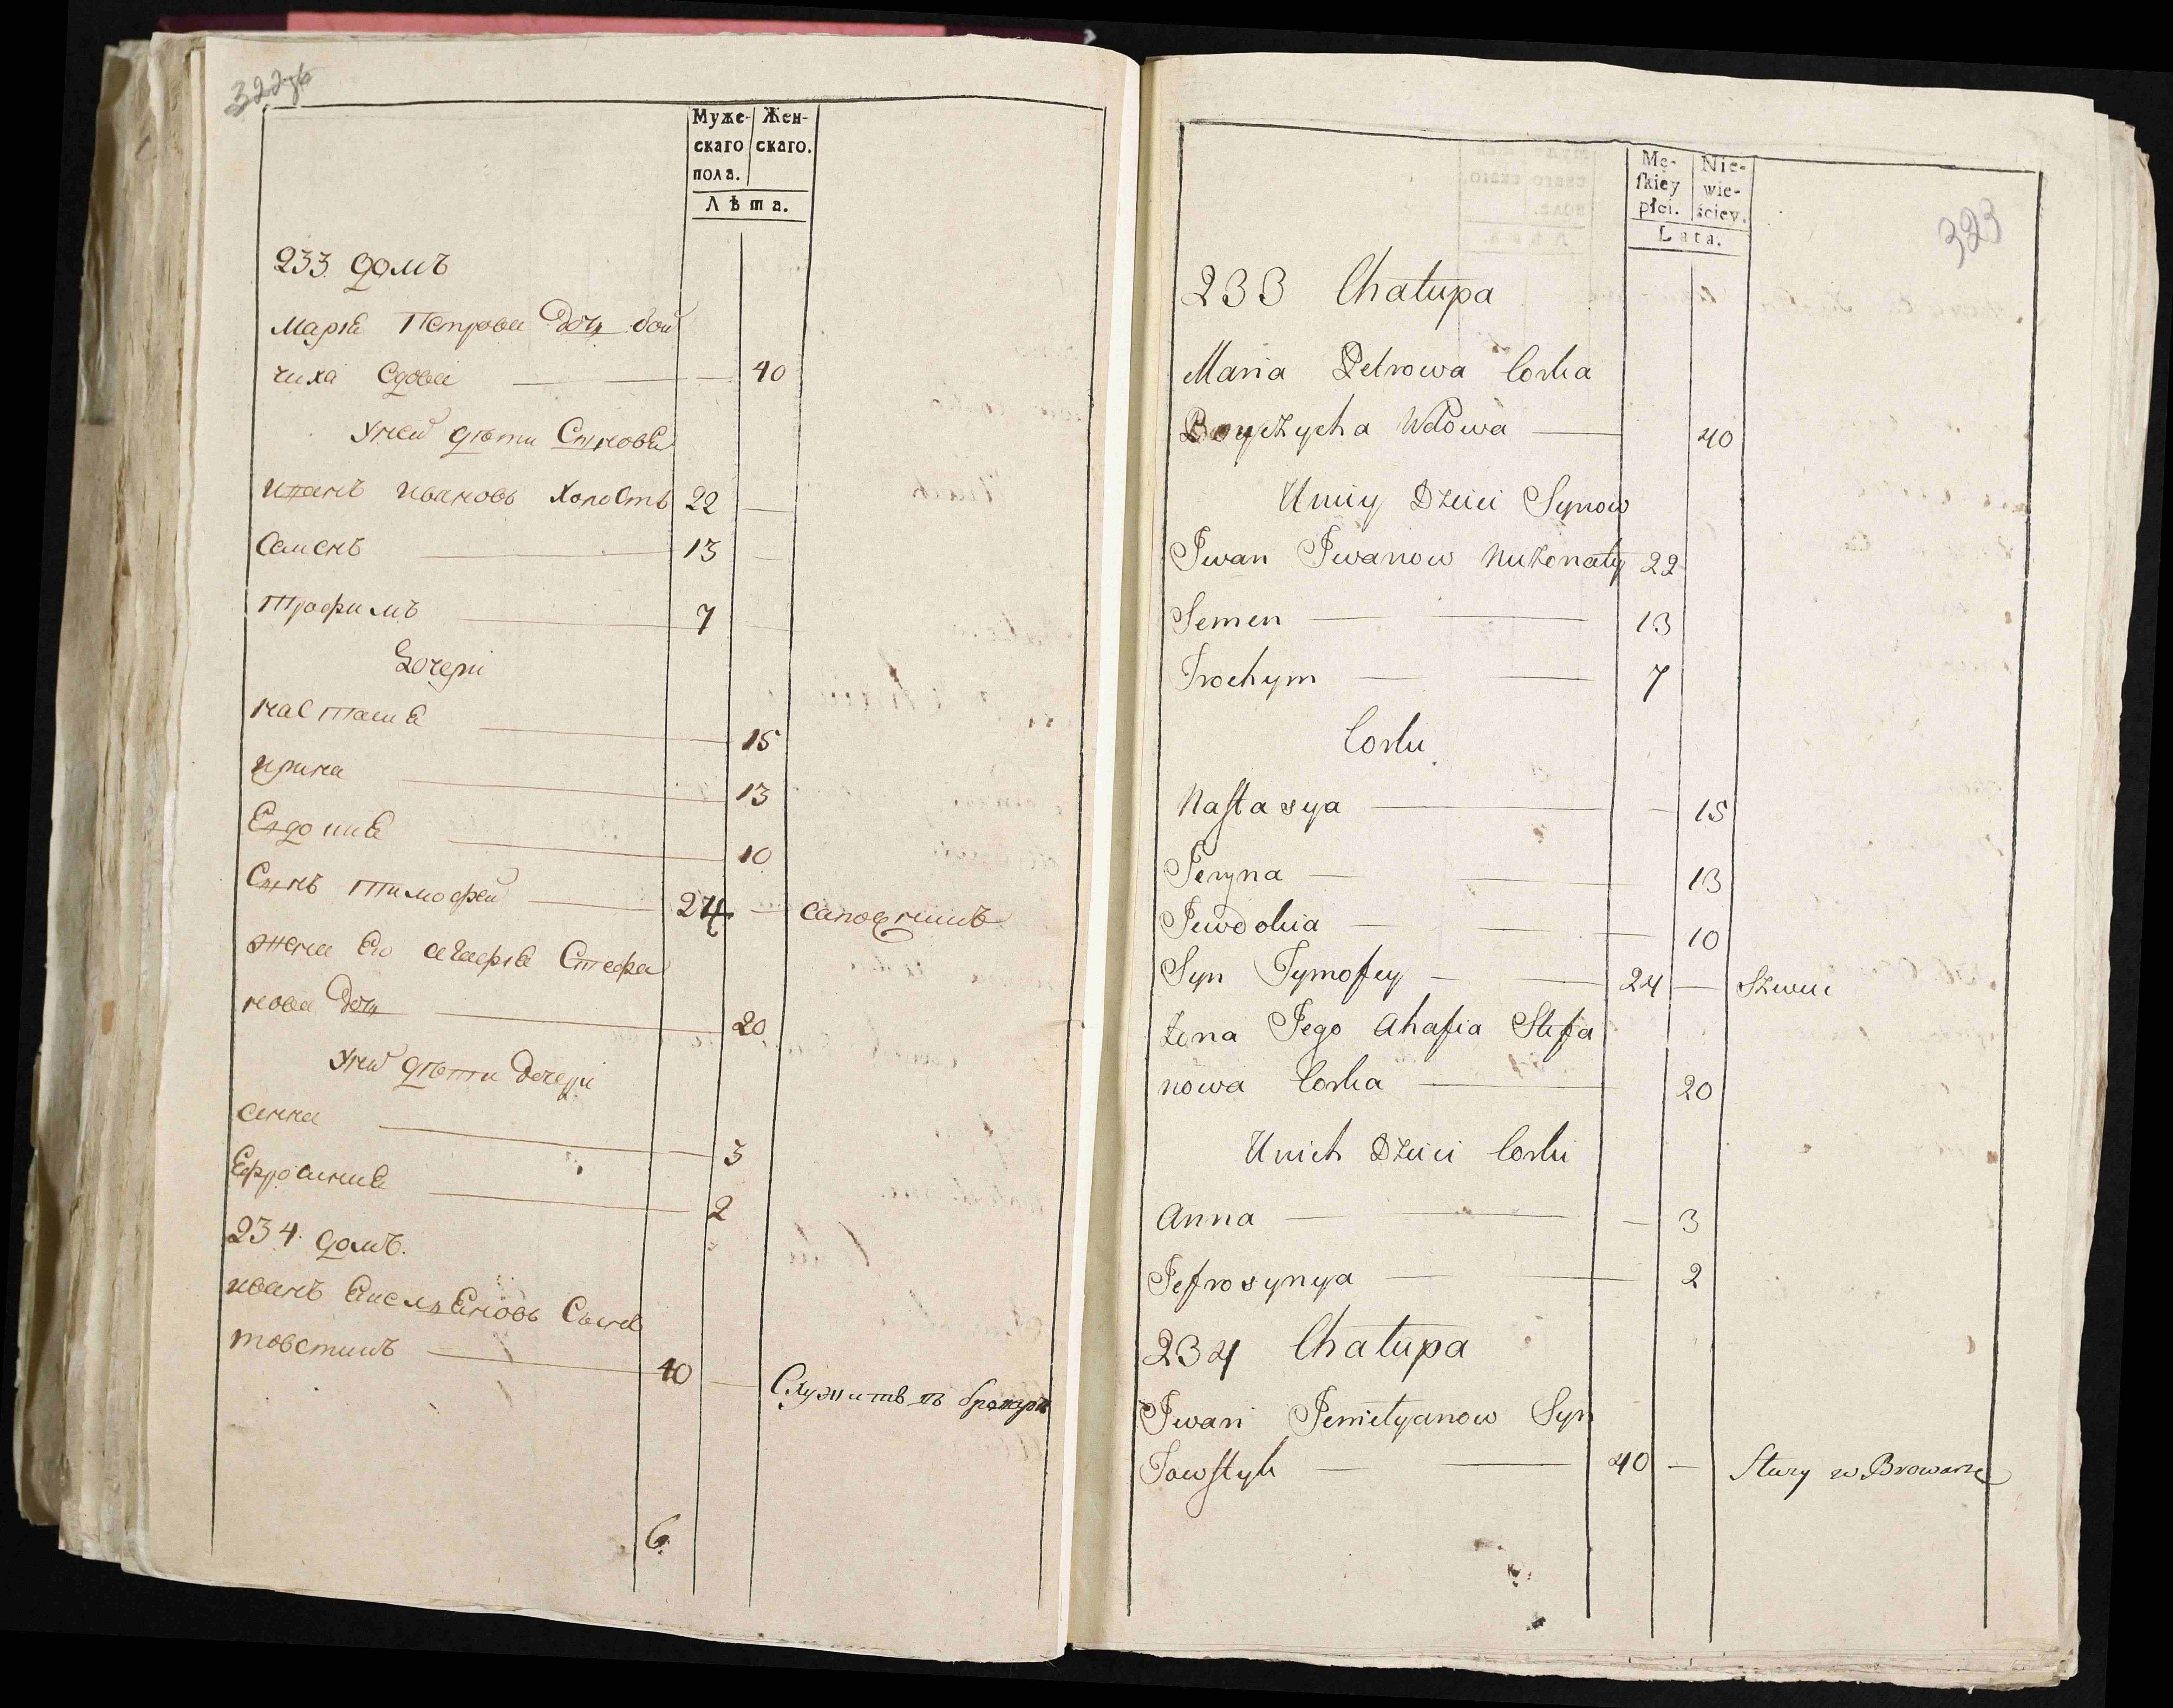 322об
Муже- Жен-
скаго скаго.
пола.
Лѣта.
233 домъ
Марія Петрова дочь бой
чиха вдова — 40
у ней дѣти Сыновя
иванъ ивановъ холостъ 22 —
Семенъ — 13 —
трофимъ — 7 —
Дочери
настасия — 15
ирина — 13
Евдокия — 10
Сынъ тимофей — 24 — сапожникъ
жена Его агафія Стефа
нова дочь — 20
у них дѣти дочери
анна — 3
Ефросиния — 2
234 домъ.
иванъ Емельяновъ Сынъ
товстикъ — 40 — Служитъ въ броварѣ
6
323
Mę- Nie-
skiey wie-
płci. ściey.
Lata.
233 Chałupa
Maria Petrowa Corka
Boyczycha Wdowa — 40
U niey Dzieci Synow
Jwan Jwanow Nieżenaty 22
Semen — 13
Trochym — 7
Corki
Nastasya — 15
Jeryna — 13
Jewdokia — 10
Syn Tymofey — 24 — Szewc
żona Jego Ahafia Stefa
nowa Corka — 20
U nich Dzieci Corki
Anna — 3
Jefrosynya — 2
234 Chałupa
Jwan Jemielyanow Syn
Towstyk — 40 — Służy w Browarze